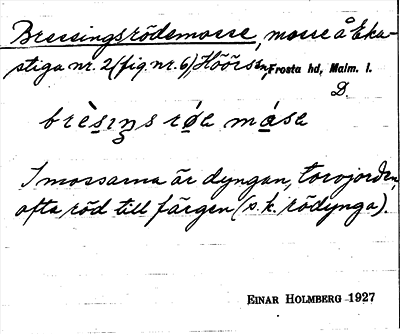 Bressingsrödsmosse, mosse å Eka-
stiga nr. 2 (fig. nr. 6), Höörs sn, Frosta hd, Malm. l.
D.
brèsıŋs røa måsa
I mossarna är dyngan, torvjorden,
ofta röd till färgen (s.k. rödynga).
EINAR HOLMBERG 1927